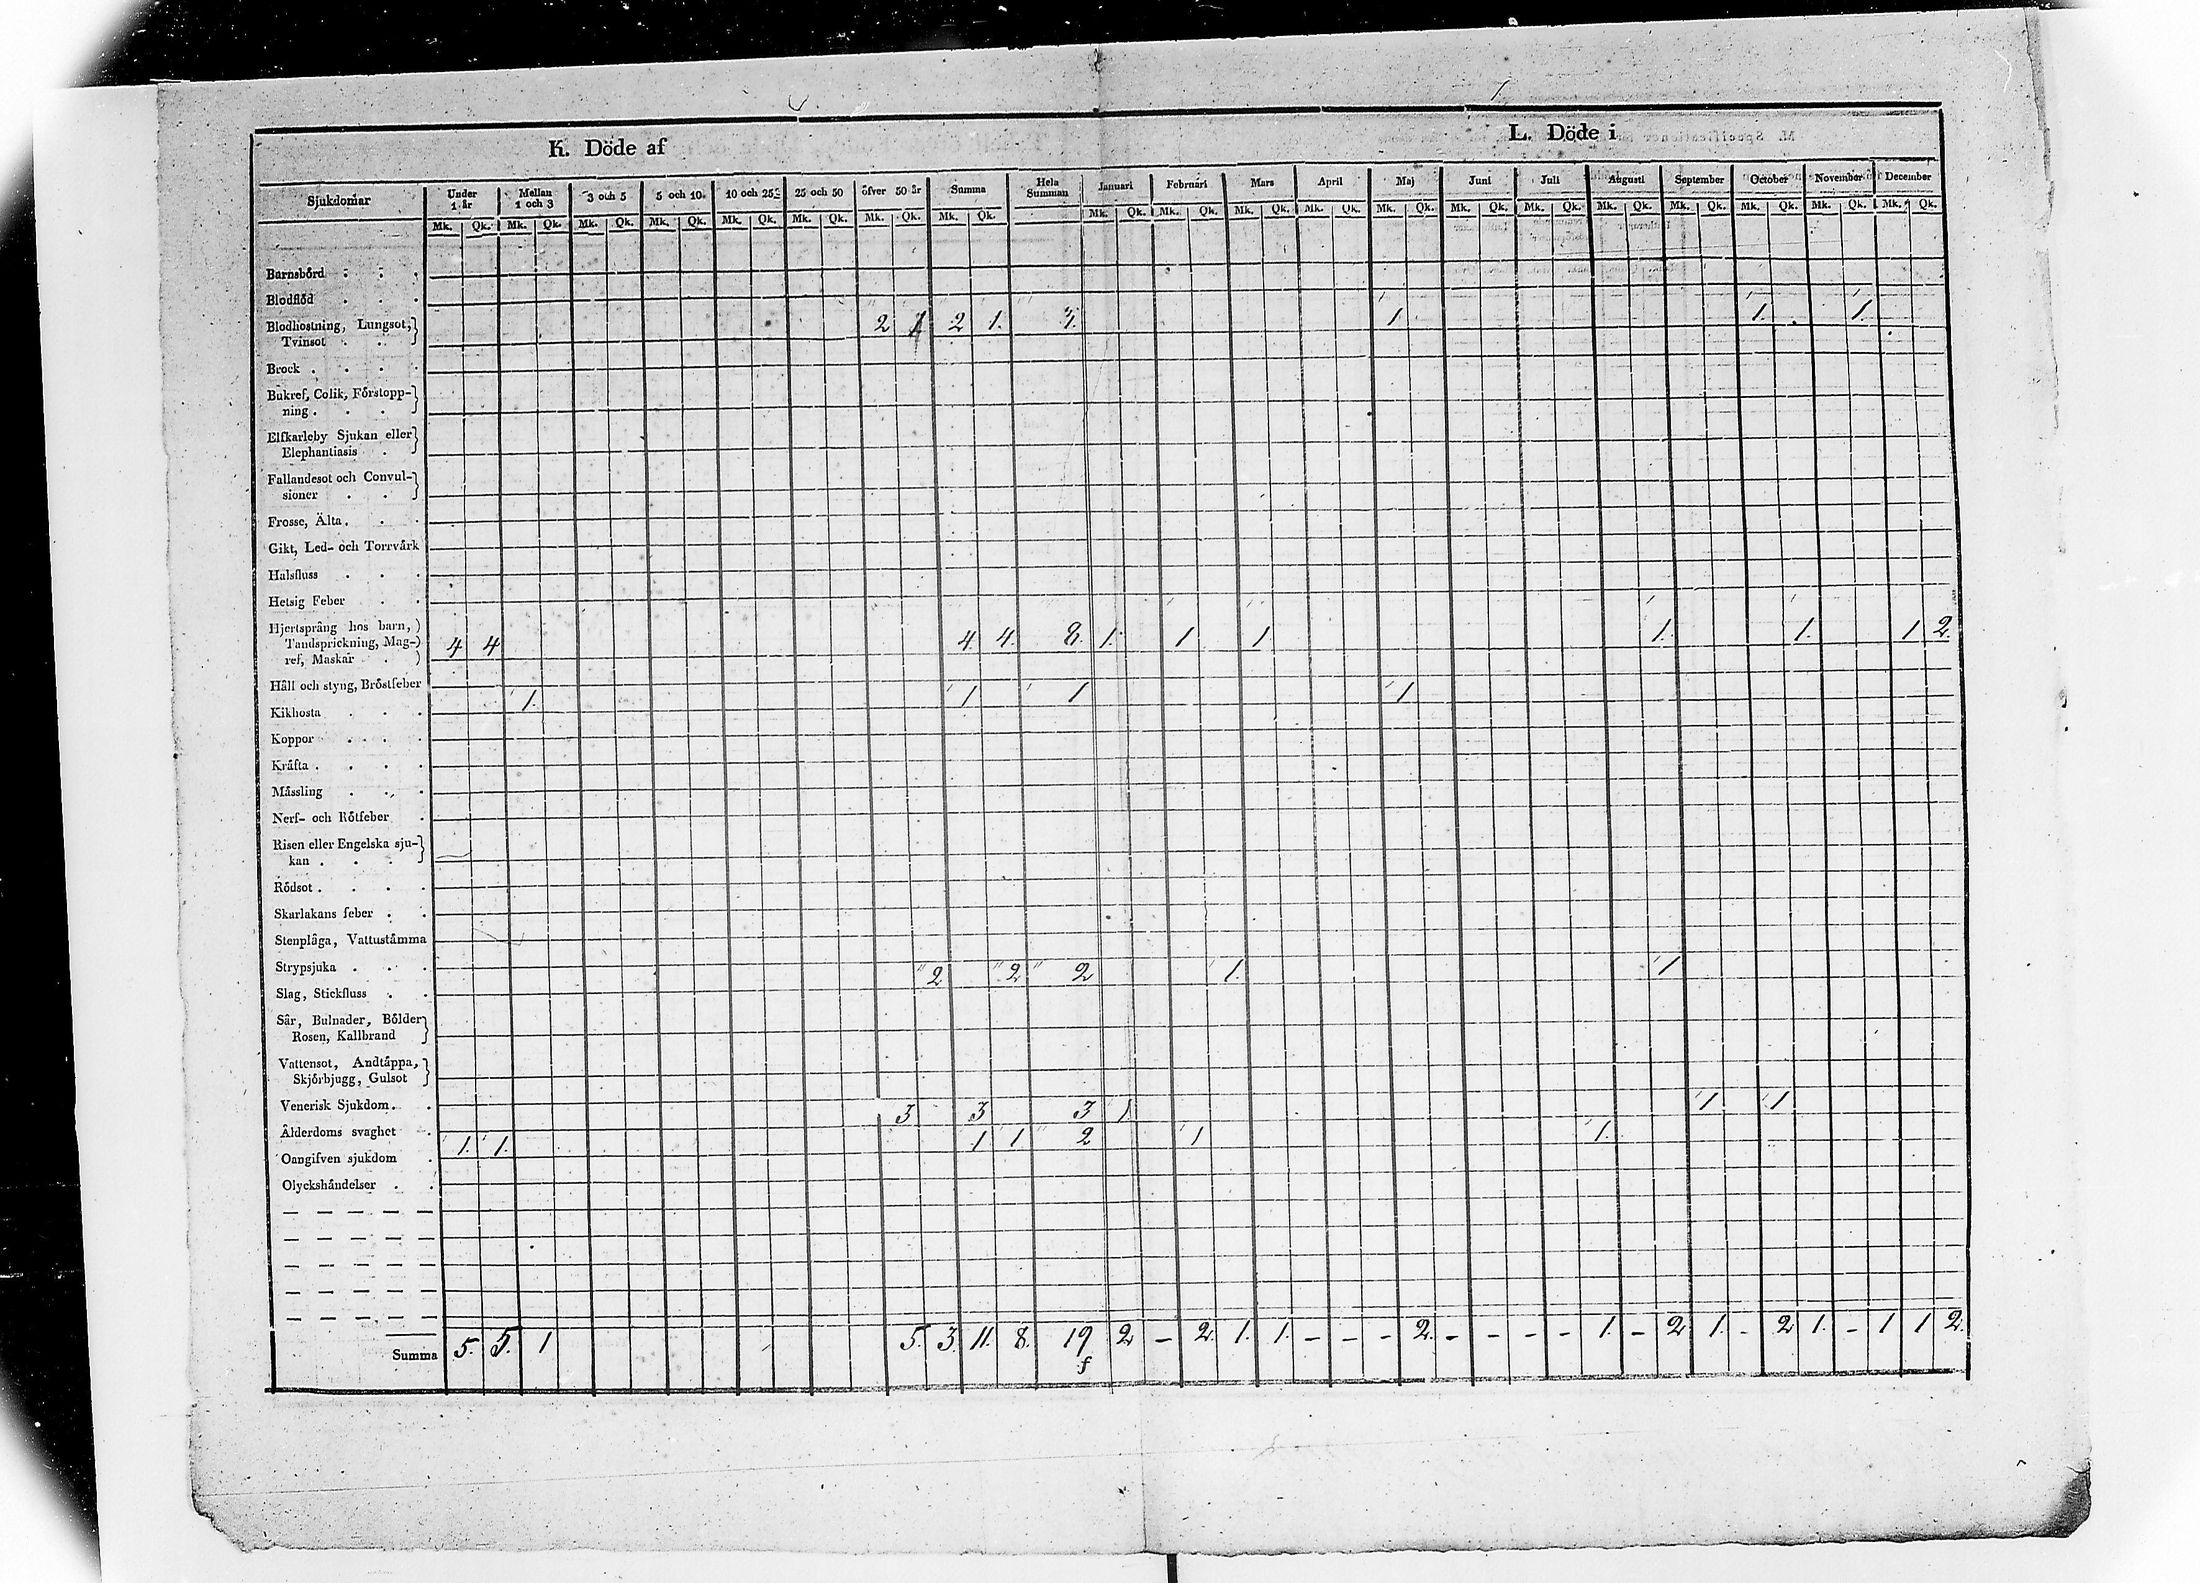 K. Döde af L. Döde i
Sjukdomar Under 1 år Mellan 1 och 3 3 och 5 5 och 10 10 och 25 25 och 50 öfver 50 år Summa Hela Summan Januari Februari Mars April Maj Juni Juli Augusti September October November December
Mk. Qk. Mk. Qk. Mk. Qk. Mk. Qk. Mk. Qk. Mk. Qk. Mk. Qk. Mk. Qk. Mk. Qk. Mk. Qk. Mk. Qk. Mk. Qk. Mk. Qk. Mk. Qk. Mk. Qk. Mk. Qk. Mk. Qk. Mk. Qk. Mk. Qk. Mk. Qk.
Barnsbörd . . .
Blodflöd . . .
Blodhostning, Lungsot, 2 1 2 1. 3. 1 1. 1
Tvinsot . .
Brock . . . .
Bukref, Colik, Förstopp-
ning . . .
Elfkarleby Sjukan eller
Elephantiasis .
Fallandesot och Convul-
sioner . .
Frossa, Älta . . .
Gikt, Led- och Torrvärk
Halsfluss . . .
Hetsig Feber . .
Hjertsprång hos barn,
Tandsprickning, Mag- 4 4 4. 4. 8. 1. 1 1 1. 1. 1 2.
ref, Maskar .
Håll och styng, Bröstfeber 1. 1 1 1
Kikhosta . . .
Koppor . . .
Kräfta . . . .
Mässling . . .
Nerf- och Rötfeber .
Risen eller Engelska sju-
kan . . .
Rödsot . . . .
Skarlakans feber . .
Stenplåga, Vattustämma
Strypsjuka . . . 2 2 2 1. 1
Slag, Stickfluss . .
Sår, Bulnader, Bölder
Rosen, Kallbrand
Vattensot, Andtäppa,
Skjörbjugg, Gulsot
Venerisk Sjukdom . . 3 3 3 1 1 1
Ålderdoms svaghet . 1. 1. 1 1 2 1 1.
Oangifven sjukdom .
Olyckshändelser . .
Summa 5. 5. 1 5. 3. 11. 8. 19 2 - 2. 1. 1. - - - 2. - - - - 1. - 2. 1. - 2 1. - 1 1 2.